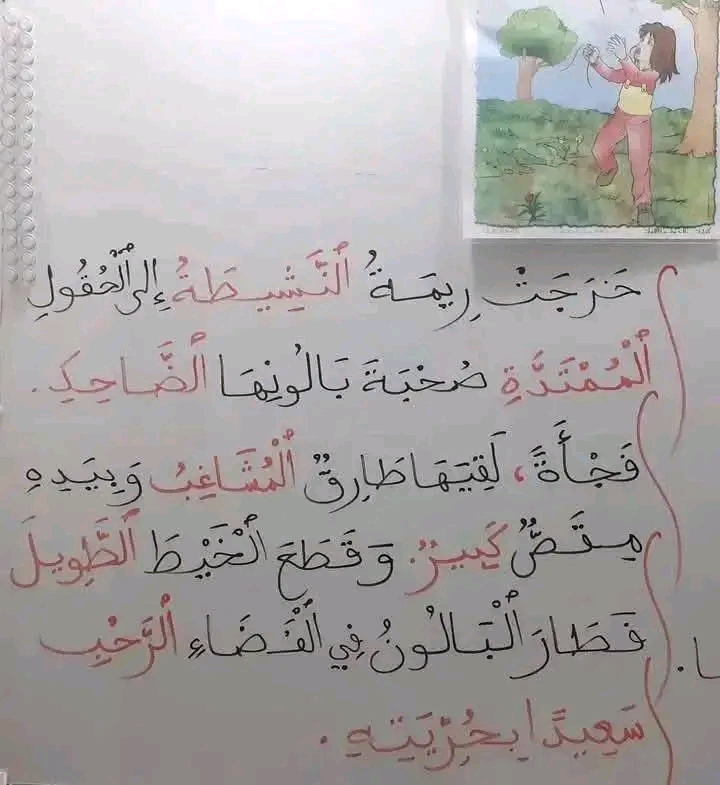 خَرَجَتْ رِيمَةُ ٱلنَّشِيطَةُ إِلَى ٱلْحُقُولِ
ٱلْمُمْتَدَّةِ صُحْبَةَ بَالُونِهَا ٱلضَّاحِكِ.
فَجْأَةً، لَقِيَهَا طَارِقٌ ٱلْمُشَاغِبُ وَبِيَدِهِ
مِقَصٌّ كَبِيرٌ. وَقَطَعَ ٱلْخَيْطَ ٱلطَّوِيلَ
فَطَارَ ٱلْبَالُونُ فِي ٱلْفَضَاءِ ٱلرَّحْبِ
سَعِيدًا بِحُرِّيَتِهِ.